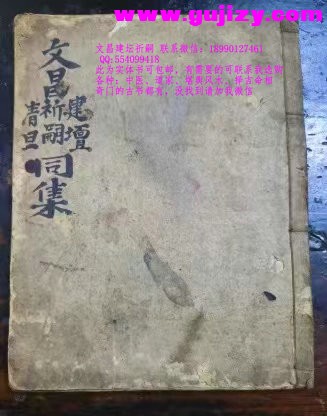 www.gujizy.com
文昌建坛祈嗣 联系微信:18990127461
QQ:554099418
此为实体书可包邮,有需要的可联系我选购
各种:中医、道家、堪舆风水、择吉命相
奇门的古书都有,没找到请加我微信
文昌
建壇
祈嗣
青旦
同集